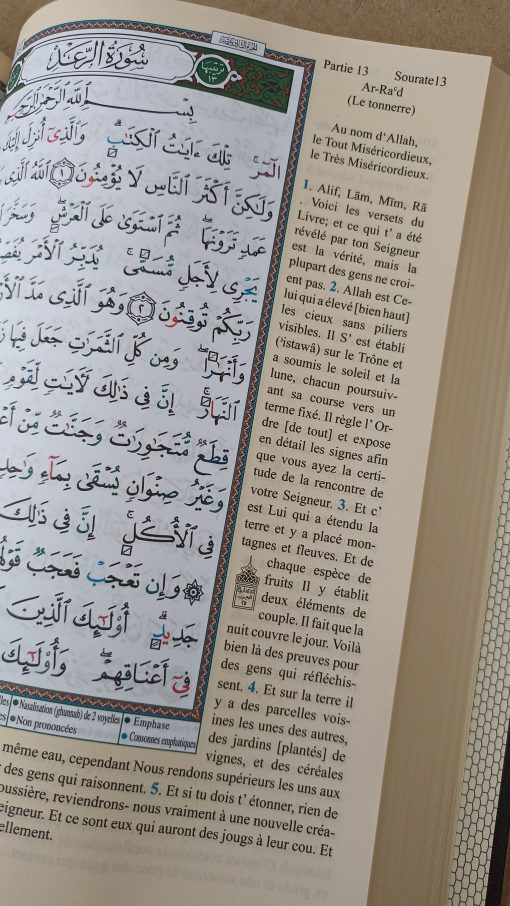 سُورَةُ الرَّعْدِ
ترتيبها ١٣
بِسْمِ ٱللَّهِ ٱلرَّحْمَٰنِ ٱلرَّحِيمِ
الٓمٓر ۚ تِلْكَ ءَايَٰتُ ٱلْكِتَٰبِ ۗ وَٱلَّذِىٓ أُنزِلَ إِلَيْكَ
وَلَٰكِنَّ أَكْثَرَ ٱلنَّاسِ لَا يُؤْمِنُونَ ١ ٱللَّهُ ٱلَّذِى
عَمَدٍ تَرَوْنَهَا ۖ ثُمَّ ٱسْتَوَىٰ عَلَى ٱلْعَرْشِ ۖ وَسَخَّرَ
يَجْرِى لِأَجَلٍ مُّسَمًّى ۚ يُدَبِّرُ ٱلْأَمْرَ
رَبِّكُمْ تُوقِنُونَ ٢ وَهُوَ ٱلَّذِى مَدَّ
وَأَنْهَٰرًا ۖ وَمِن كُلِّ ٱلثَّمَرَٰتِ جَعَلَ فِيهَا
ٱلنَّهَارَ ۚ إِنَّ فِى ذَٰلِكَ لَءَايَٰتٍ لِّقَوْمٍ
قِطَعٌ مُّتَجَٰوِرَٰتٌ وَجَنَّٰتٌ مِّنْ
وَغَيْرُ صِنْوَانٍ يُسْقَىٰ بِمَآءٍ وَٰحِدٍ
فِى ٱلْأُكُلِ ۚ إِنَّ فِى ذَٰلِكَ
وَإِن تَعْجَبْ فَعَجَبٌ قَوْلُهُمْ
جَدِيدٍ ۗ أُو۟لَٰٓئِكَ ٱلَّذِينَ
فِىٓ أَعْنَاقِهِمْ ۖ وَأُو۟لَٰٓئِكَ
● Nasalisation (ghunnah) de 2 voyelles ● Emphase
● Non prononcées ● Consonnes emphatiques
Partie 13 Sourate13
Ar-Raʿd
(Le tonnerre)
Au nom d‘Allah,
le Tout Miséricordieux,
le Très Miséricordieux.
1. Alif, Lām, Mīm, Rā
. Voici les versets du
Livre; et ce qui t’ a été
révélé par ton Seigneur
est la vérité, mais la
plupart des gens ne croi-
ent pas. 2. Allah est Ce-
lui qui a élevé [bien haut]
les cieux sans piliers
visibles. Il S’ est établi
(’istawâ) sur le Trône et
a soumis le soleil et la
lune, chacun poursuiv-
ant sa course vers un
terme fixé. Il règle l’ Or-
dre [de tout] et expose
en détail les signes afin
que vous ayez la certi-
tude de la rencontre de
votre Seigneur. 3. Et c’
est Lui qui a étendu la
terre et y a placé mon-
tagnes et fleuves. Et de
chaque espèce de
fruits Il y établit
deux éléments de
couple. Il fait que la
nuit couvre le jour. Voilà
bien là des preuves pour
des gens qui réfléchis-
sent. 4. Et sur la terre il
y a des parcelles vois-
ines les unes des autres,
des jardins [plantés] de
vignes, et des céréales
même eau, cependant Nous rendons supérieurs les uns aux
des gens qui raisonnent. 5. Et si tu dois t’ étonner, rien de
oussière, reviendrons- nous vraiment à une nouvelle créa-
eigneur. Et ce sont eux qui auront des jougs à leur cou. Et
ellement.